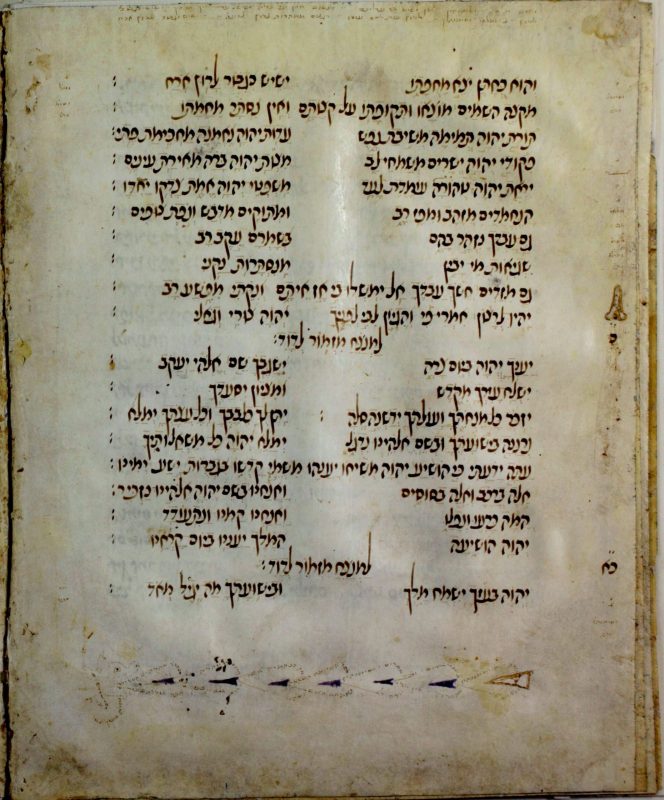 והוא כחתן יצא מחפתו ישיש כגבור לרוץ ארח :
מקצה השמים מוצאו ותקופתו על קצותם ואין נסתר מחמתו :
תורת יהוה תמימה משיבת נפש עדות יהוה נאמנה מחכימת פתי :
פקודי יהוה ישרים משמחי לב מצות יהוה ברה מאירת עינים :
יראת יהוה טהורה עמדת לעד משפטי יהוה אמת צדקו יחדו :
הנחמדים מזהב ומפז רב ומתוקים מדבש ונפת צופים :
גם עבדך נזהר בהם בשמרם עקב רב :
שגיאות מי יבין מנסתרות נקני :
גם מזדים חשך עבדך אל ימשלו בי אז איתם ונקיתי מפשע רב :
יהיו לרצון אמרי פי והגיון לבי לפניך יהוה צורי וגאלי :
למנצח מזמור לדוד :
כ
יענך יהוה ביום צרה ישגבך שם אלהי יעקב :
ישלח עזרך מקדש ומציון יסעדך :
יזכר כל מנחתך ועולתך ידשנה סלה : יתן לך כלבבך וכל עצתך ימלא :
נרננה בישועתך ובשם אלהינו נדגל ימלא יהוה כל משאלותיך :
עתה ידעתי כי הושיע יהוה משיחו יענהו משמי קדשו בגברות ישע ימינו :
אלה ברכב ואלה בסוסים ואנחנו בשם יהוה אלהינו נזכיר :
המה כרעו ונפלו ואנחנו קמנו ונתעודד :
יהוה הושיעה המלך יעננו ביום קראנו :
למנצח מזמור לדוד :
כא
יהוה בעזך ישמח מלך ובישועתך מה יגיל מאד :